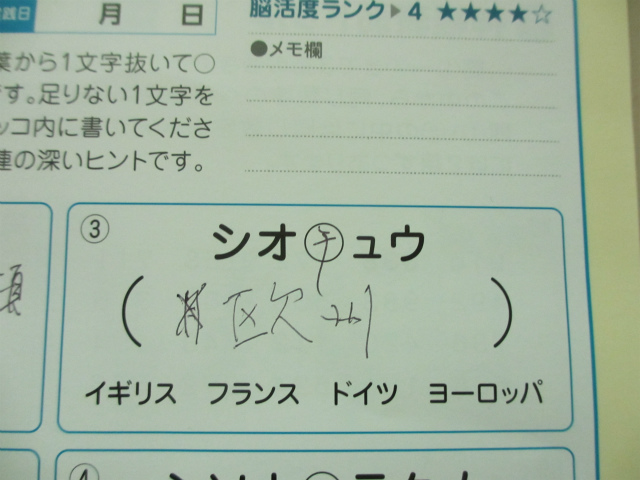 月 日
脳活度ランク▶4 ★★★★☆
●メモ欄
葉から1文字抜いて○
です。足りない1文字を
ッコ内に書いてくださ
連の深いヒントです。
③
シオ○ュウ
( 欧州 )
イギリス フランス ドイツ ヨーロッパ
④